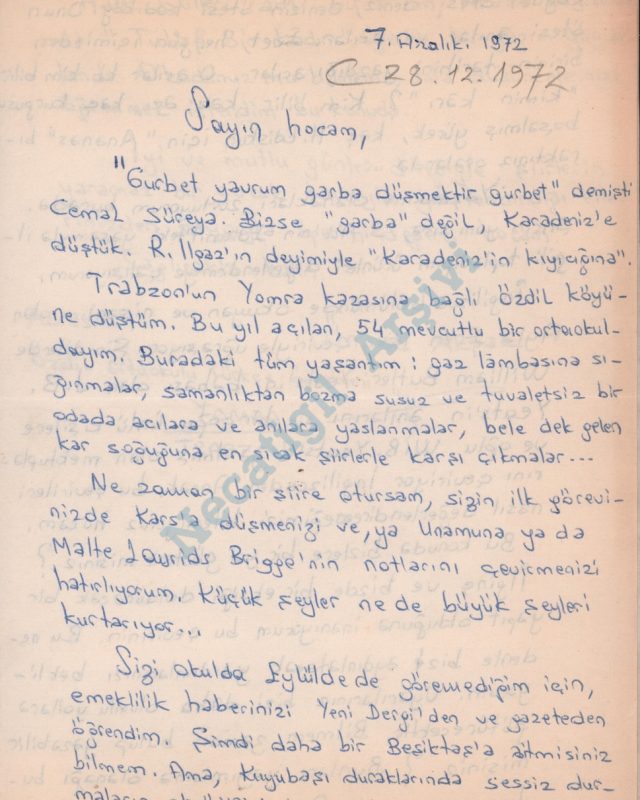 7. Aralık. 1972
C 28.12.1972
Sayın hocam,
"Gurbet yavrum garba düşmektir gurbet" demişti
Cemal Süreya. Bizse "garba" değil, Karadeniz'e
düştük. R. Ilgaz'ın deyimiyle "Karadeniz'in kıyıcığına".
Trabzon'un Yomra kazasına bağlı Özdil köyü-
ne düştüm. Bu yıl açılan, 54 mevcutlu bir ortaokul-
dayım. Buradaki tüm yaşantım: gaz lâmbasına sı-
ğınmalar, samanlıktan bozma susuz ve tuvaletsiz bir
odada acılara ve anılara yaslanmalar, bele dek gelen
kar soğuğuna en sıcak şiirlerle karşı çıkmalar...
Ne zaman bir şiire otursam, sizin ilk görevi-
nizde Kars'a düşmenizi ve, ya Unamuna ya da
Malte Laurids Brigge'nin notlarını çevirmenizi
hatırlıyorum. Küçük şeyler ne de büyük şeyleri
kurtarıyor...
Sizi okulda Eylülde de göremediğim için,
emeklilik haberinizi Yeni Dergi'den ve gazeteden
öğrendim. Şimdi daha bir Beşiktaş'a aitmisiniz
bilmem. Ama, Kuyubaşı duraklarında sessiz dur-
Necatigil Arşivi